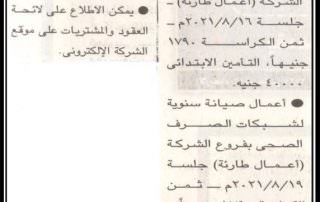 الشركة (أعمال طارئة) –
جلسة ٢٠٢١/٨/١٦م –
ثمن الكراسة ١٧٩٠
جنيهاً، التأمين الابتدائى
٤٠٠٠٠ جنيه.
● أعمال صيانة سنوية
لشبكات الصرف
الصحى بفروع الشركة
(أعمال طارئة) جلسة
٢٠٢١/٨/١٩م – ثمن
● يمكن الاطلاع على لائحة
العقود والمشتريات على موقع
الشركة الإلكترونى.